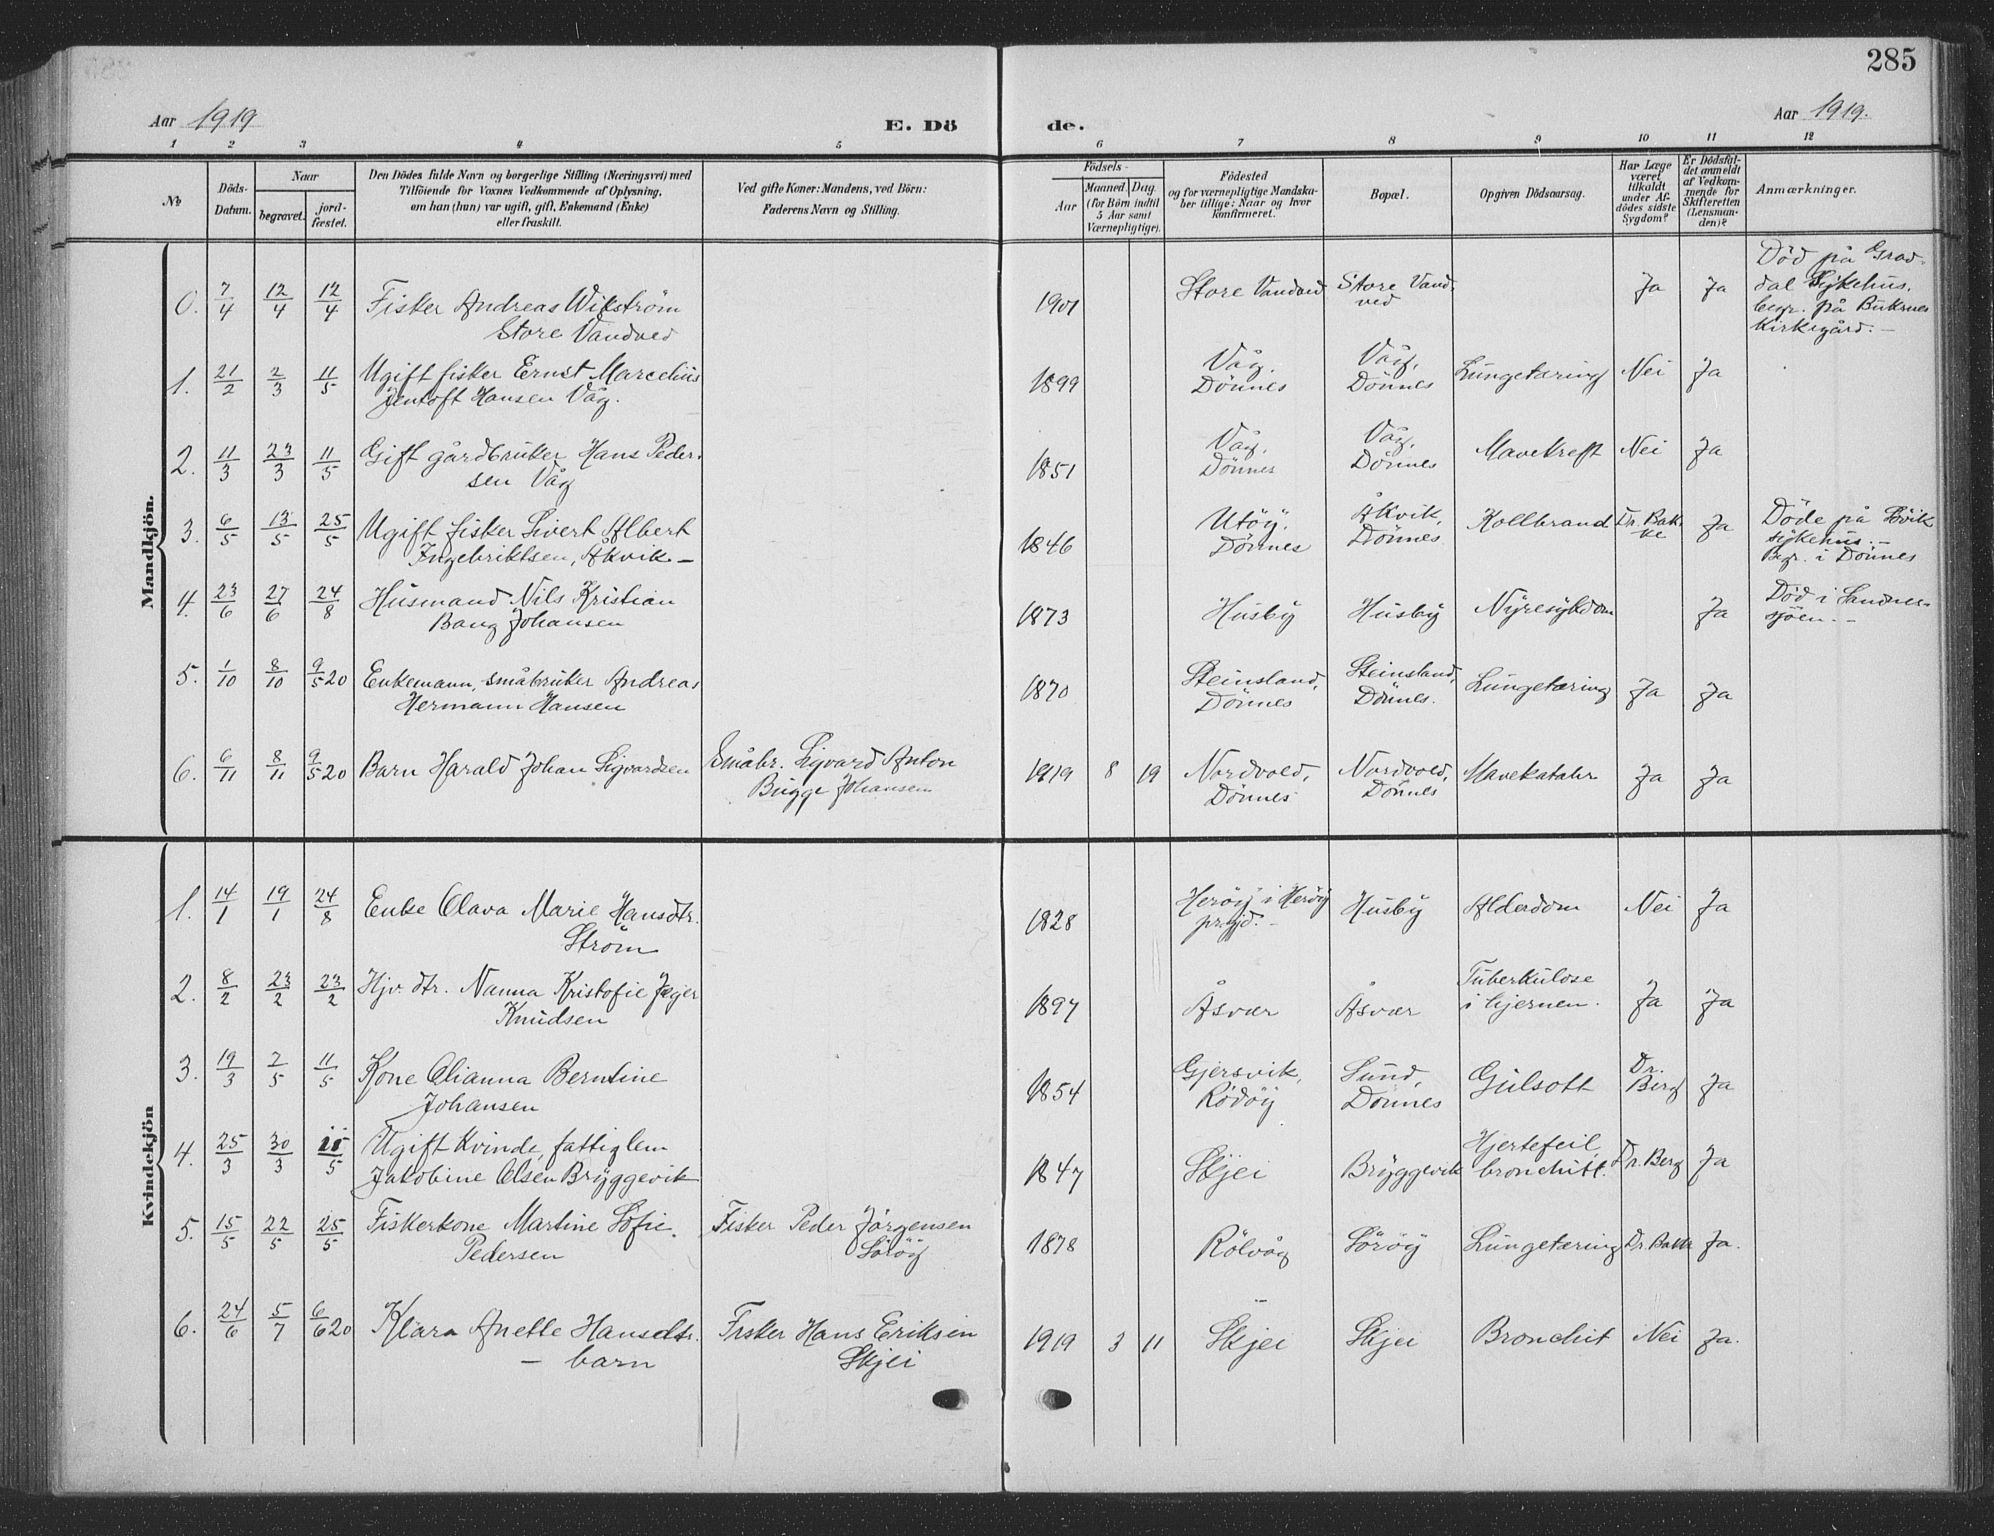 285
Aar 1919 E. Dö de. Aar 1919.
1 2 3 4 5 6 7 8 9 10 11 12
No
Döds-
Datum.
Naar
begravet.
jord-
fæstet.
Den Dödes fulde Navn og borgerlige Stilling (Næringsvei) med
Tilföiende for Voxnes Vedkommende af Oplysning,
om han (hun) var ugift, gift, Enkemand (Enke)
eller fraskilt.
Ved gifte Koner: Mandens, ved Börn:
Faderens Navn og Stilling.
Födsels-
Aar
Maaned. Dag.
(for Börn indtil
5 Aar samt
Værnepligtige).
Födested
og for værnepligtige Mandska-
ber tillige: Naar og hvor
konfirmeret.
Bopæl.
Opgiven Dödsaarsag.
Har Læge
været
tilkaldt
under Af-
dödes sidste
Sygdom?
Er Dödsfal-
det anmeldt
af Vedkom-
mende for
Skifteretten
(Lensman-
den)?
Anmærkninger.
Mandkjön.
0. 7/4 12/4 12/4 Fisker Andreas Wikström
Store Vandved
1901 Store Vandved Store Vand-
ved
Ja Ja Död på Grav-
dal Sykehus,
begr. på Buksnes
Kirkegård. -
1. 21/2 2/3 11/5 Ugift fisker Ernst Marcelius
Jentoft Hansen Våg.
1899 Våg,
Dönnes
Våg,
Dönnes
Lungetæring Nei Ja
2. 11/3 23/3 11/5 Gift gårdbruker Hans Peder-
sen Våg
1851 Våg,
Dönnes
Våg,
Dönnes
Mavekreft Nei Ja
3. 6/5 13/5 25/5 Ugift fisker Sivert Albert
Ingebriktsen, Åkvik -
1846 Utöy,
Dönnes
Åkvik,
Dönnes
Kollbrand Dr. Bak-
ke
Ja Döde på Sövik
sykehus. -
Begr. i Dönnes
4. 23/6 27/6 24/8 Husmand Nils Kristian
Bang Johansen
1873 Husby Husby Nyresykdom Ja Död i Sandnes-
sjöen. -
5. 1/10 8/10 9/5 20 Enkemann, småbruker Andreas
Hermann Hansen
1870 Steinsland,
Dönnes
Steinsland,
Dönnes.
Lungetæring Ja Ja
6. 6/11 8/11 9/5 20 Barn Harald Johan Sigvardsen Småbr. Sigvard Anton
Bugge Johansen
1919 8 19 Nordvold,
Dönnes
Nordvold,
Dönnes
Mavekatahr Ja Ja
Kvindekjön
1. 14/1 19/1 24/8 Enke Olava Marie Hansdtr.
Ström
1828 Heröy i Heröy
prgjd. -
Husby Alderdom Nei Ja
2. 8/2 23/2 23/2 Hjv. dtr. Nanna Kristofie Jæger
Knudsen
1897 Åsvær Åsvær Tuberkulose
i hjernen.
Ja Ja
3. 19/3 2/5 11/5 Kone Olianna Berntine
Johansen
1854 Gjersvik,
Rödöy
Sund,
Dönnes
Gulsott Dr.
Berg
Ja
4. 25/3 30/3 11/5 Ugift Kvinde, fattiglem
Jakobine Olsen Bryggevik
1847 Skjei Bryggevik Hjertefeil,
bronchitt.
Dr. Berg Ja
5. 15/5 22/5 25/5 Fiskerkone Martine Sofie
Pedersen
Fisker Peder Jörgensen
Söröy
1878 Rölvåg Söröy Lungetæring Dr. Bakk Ja.
6. 24/6 5/7 6/6 20 Klara Anette Hansdtr.
- barn
Fisker Hans Eriksen
Skjei
1919 3 11 Skjei Skjei Bronchit Nei Ja.